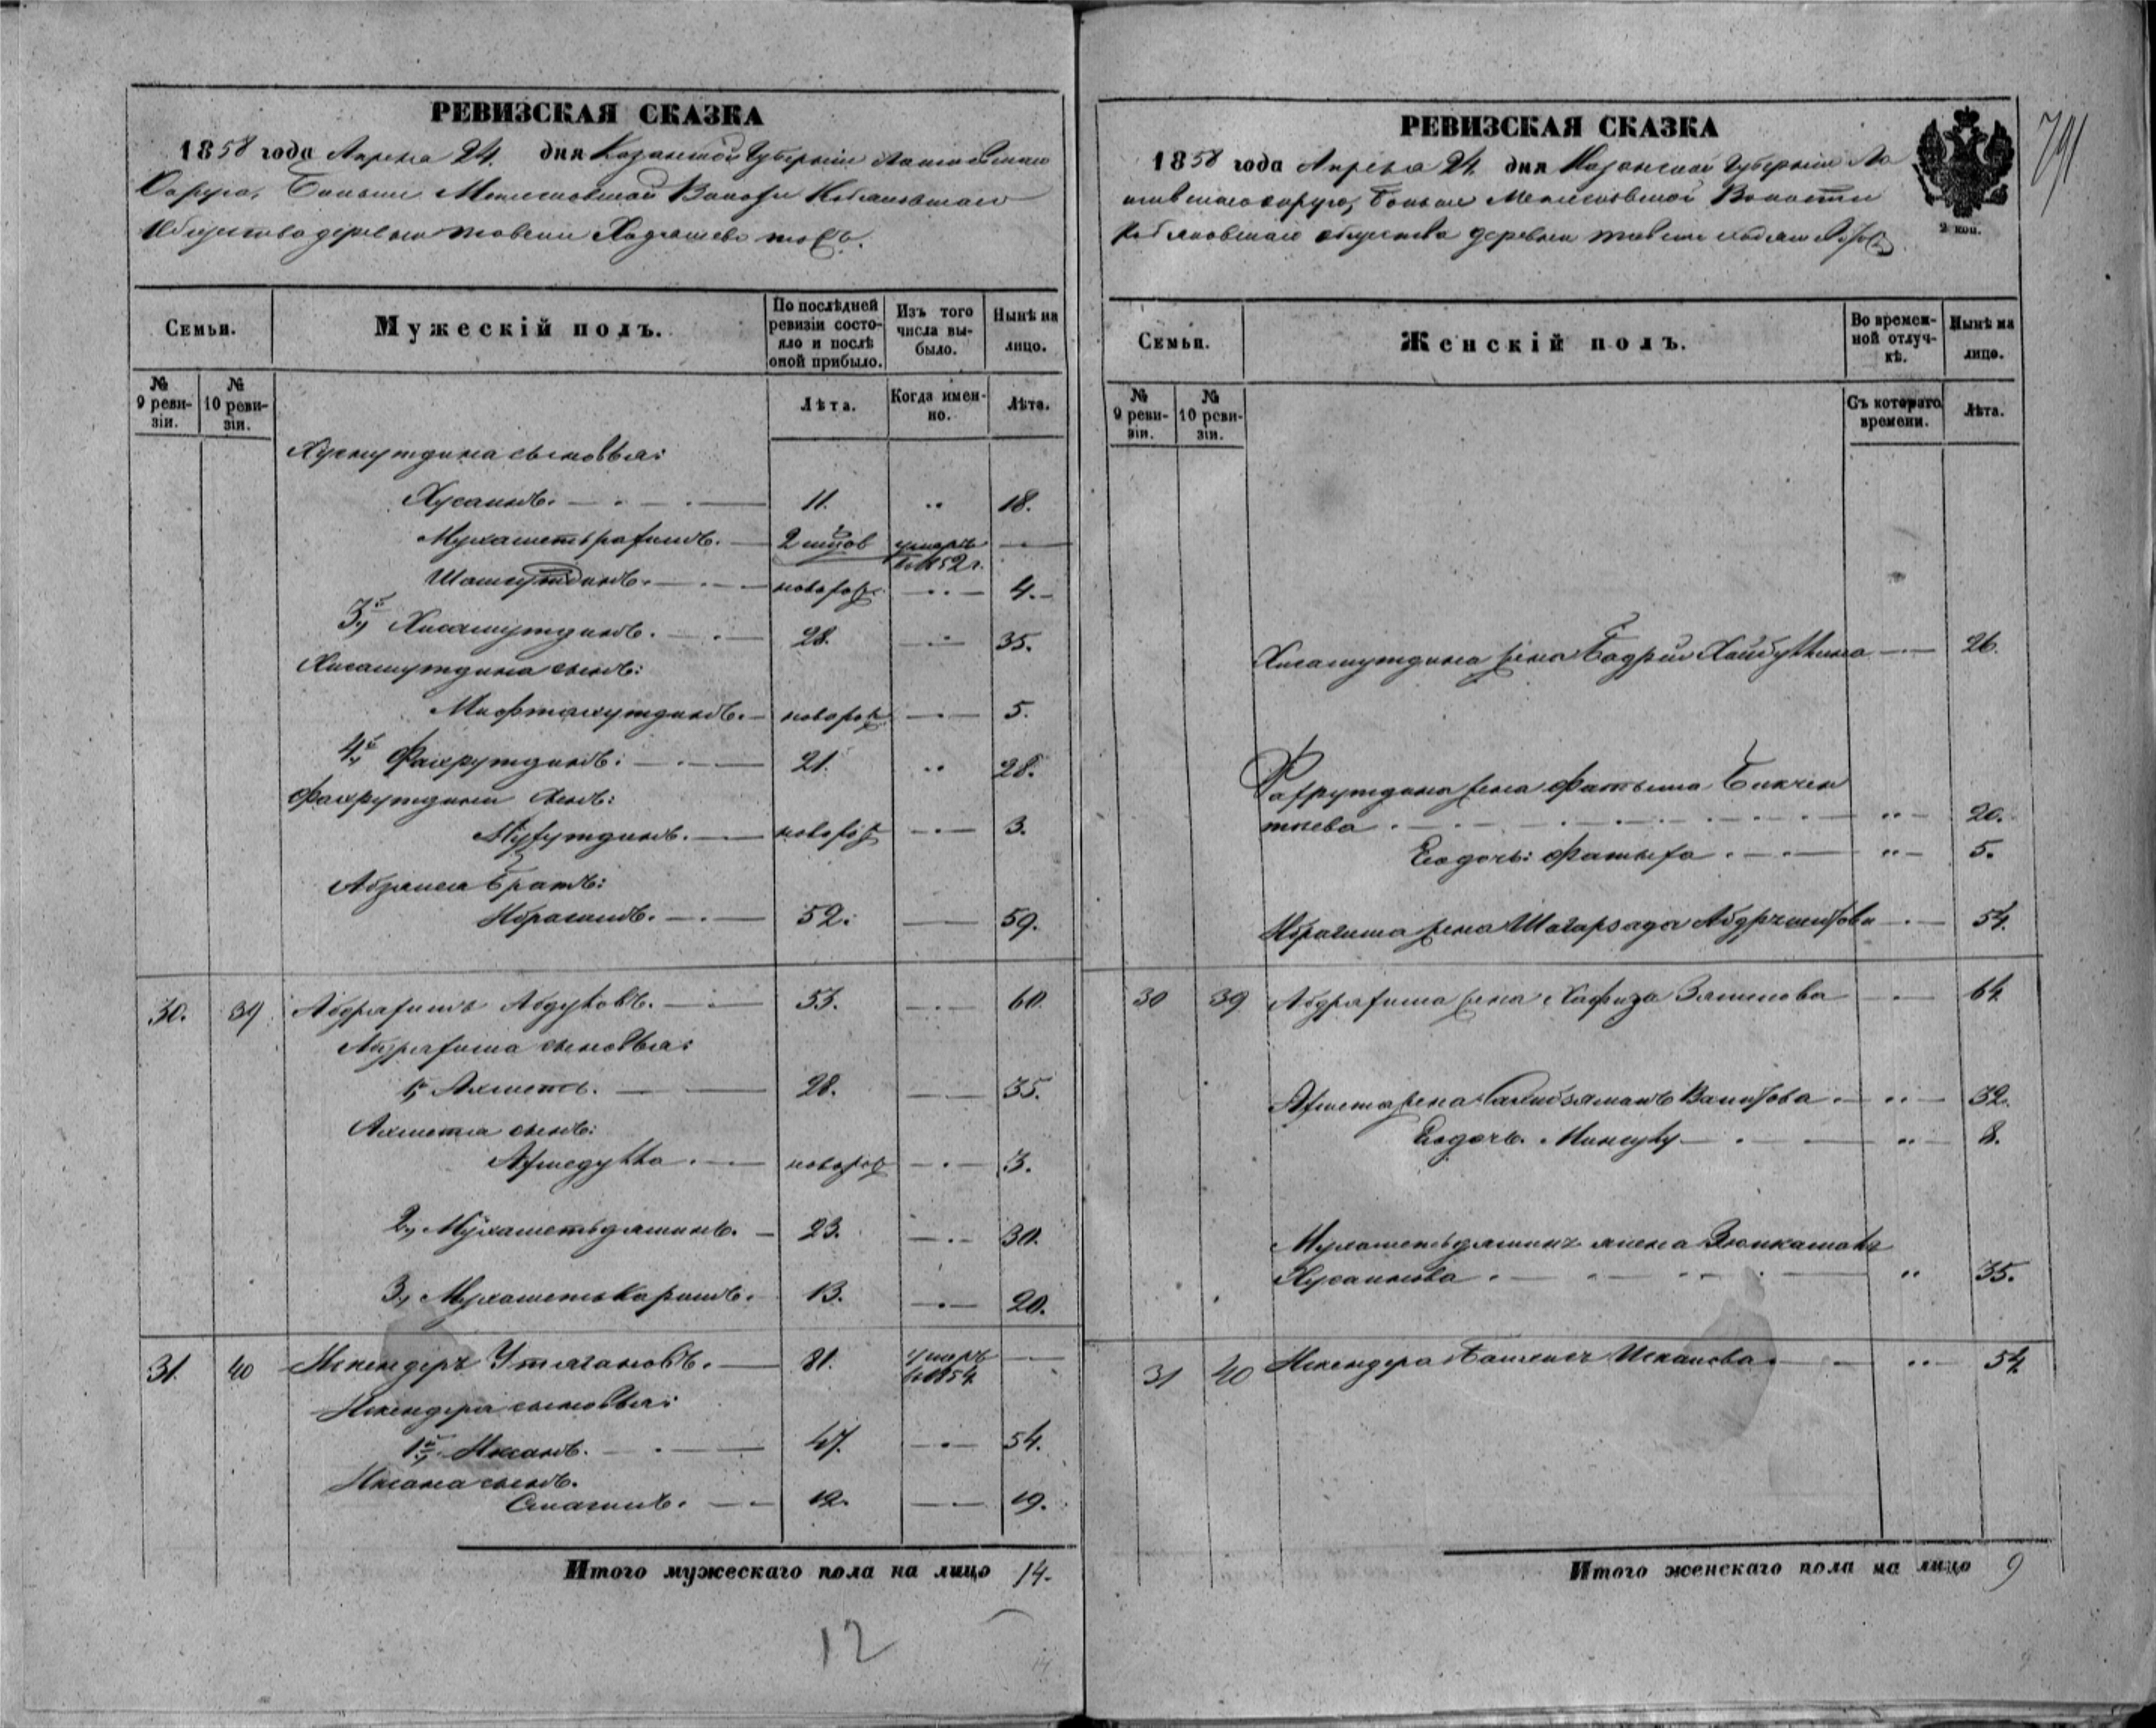 РЕВИЗСКАЯ СКАЗКА
1858 года Апреля 24. дня Казанской Губерніи Лаишевскаго
Округа, Больше Волости Кобяковскаго
Общества деревни Ходяшево тожъ.
Семьи.
Мужескій полъ.
По послѣдней ревизіи состояло и послѣ оной прибыло.
Изъ того числа выбыло.
Нынѣ на лицо.
№ 9 ревизіи.
№ 10 ревизіи.
Лѣта.
Когда именно.
Лѣта.
Хуснутдина сыновья:
Хусаинъ. 11. 18.
Мухаметьрахимъ. умеръ в 1852 г.
Шамсутдинъ. новорож 4.
3й Хисамутдинъ. 28. 35.
Хисамутдина сынъ:
Мифтахутдинъ. новорож 5.
4й Фахрутдинъ: 21. 28.
Фахрутдина сынъ:
новорож 3.
Абзяна братъ:
Ибрагимъ. 52. 59.
30. 39 Абдрахимъ 53. 60.
Абдрахима сыновья:
1, Ахметъ. 28. 35.
Ахмета сынъ:
Ахмедулла новорож 3.
2, Мухаметьдяминъ. 23. 30.
3, Мухаметькаримъ. 13. 20.
31. 40 Искендеръ Утягановъ. 81. умеръ в 1854
Искендера сыновья:
1й, Иксанъ. 47. 54.
Иксана сынъ.
Смагилъ. 12. 19.
Итого мужескаго пола на лицо 14.
12
РЕВИЗСКАЯ СКАЗКА
1858 года Апреля 24. дня Казанской Губерніи Ла
ишевскаго округа, Больше Волости
Кобяковскаго общества деревни
2 коп.
791
Семьи.
Женскій полъ.
Во временной отлучкѣ.
Нынѣ на лицо.
№ 9 ревизіи.
№ 10 ревизіи.
Съ котораго времени.
Лѣта.
Хисамутдина жена Хайбуллина 26.
Фахрутдина жена Фатыма Бикчен
таева 20.
Ево дочь: Фатыха 5.
Ибрагима жена 54.
30 39 Абдрахима жена Хафиза 64.
Ахмета жена Вагитова 32.
Ево дочь. 8.
Мухаметьдямина жена
Хусаинова 35.
31 40 Искендера 54.
Итого женскаго пола на лицо 9